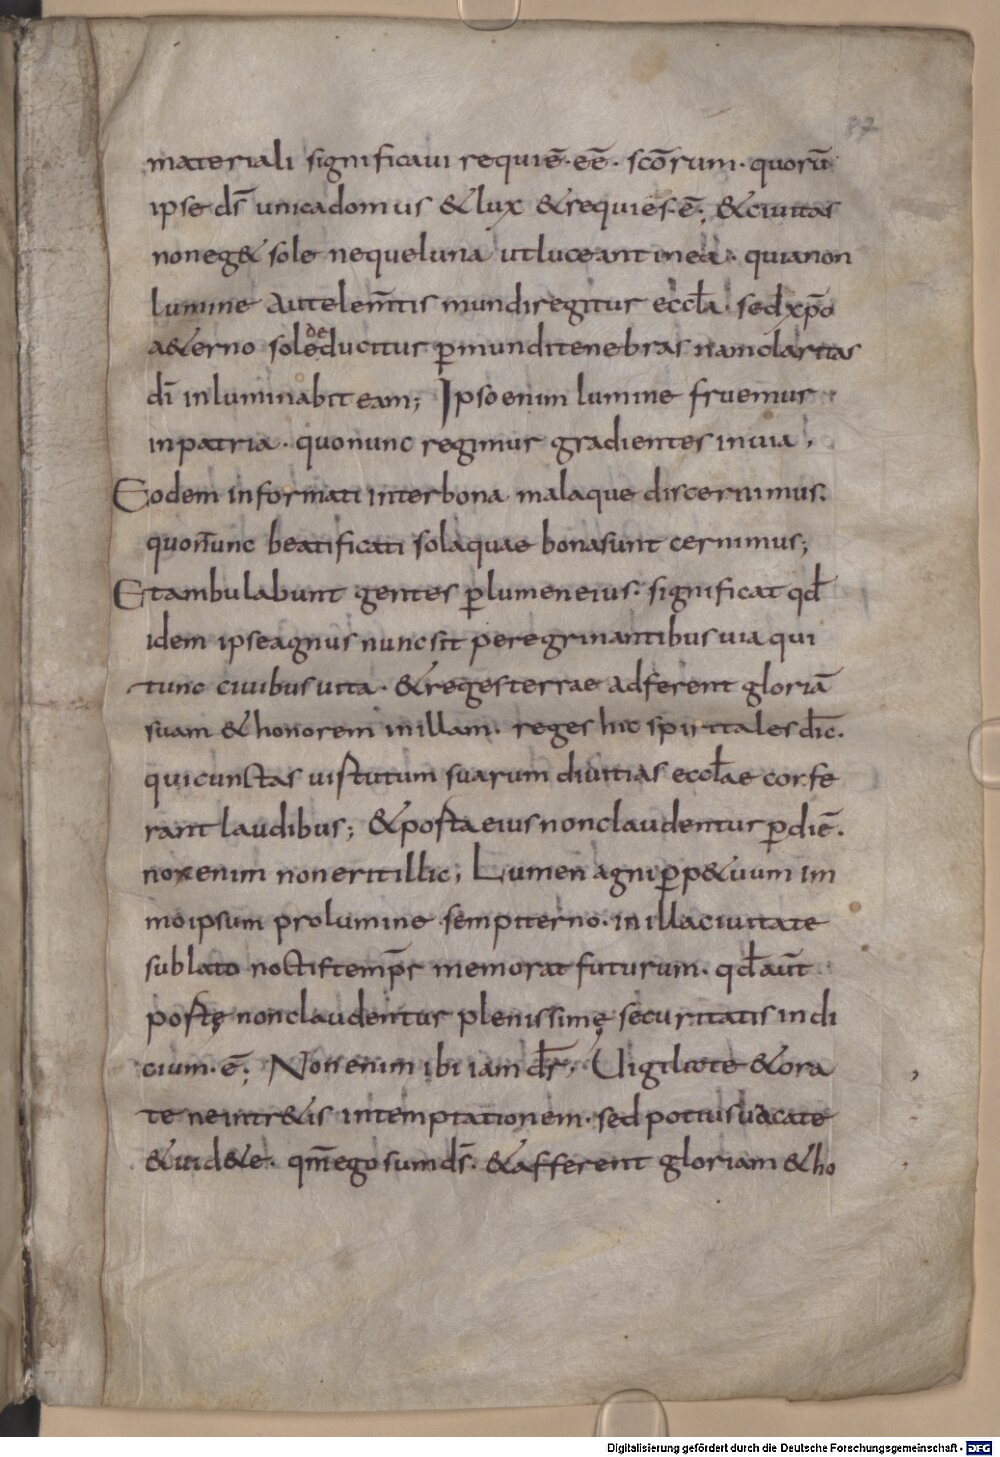 87
materiali significaui requiē·eē· scōrum· quorū
ipse ds̄ unicadomus &lux &requies·ē; &ciuitas
noneg& sole nequeluna utluceant inea· quianon
lumine autelem̄tis mundiregitur eccl̄a· sedxp̄o
a&erno solededucitur p̱munditenebras namclaritas
dī inluminabit eam; Ipsoenim lumine fruemur
inpatria· quonunc regimur gradientes inuia,
Eodem informati interbona malaque discernimus.
quon̄unc beatificati solaquae bonasunt cernimus;
Etambulabunt gentes p̱lumeneius· significat qđ
idem ipseagnus nuncsit peregrinantibus uia qui
tunc ciuibus uita· &regesterrae adferent gloriā
suam &honorem inillam· reges hic spiritales dic̄·
quicunctas uirtutum suarum diuitias eccl̄ae confe
rant laudibus; &portaeius nonclaudentur p̱diē·
noxenim noneritillic; Lumen agni p̱p&uum im
moipsum prolumine sempiterno· inillaciuitate
sublato noctiftemp̄r memorat futurum· qđaūt
portę nonclaudentur plenissimę securitatis indi
cium·ē; Non enim ibi iam dr̄; Uigilate &ora
te neintr&is intemptationem· sed potiusuacate
&uid&e· qm̄ego sumds̄· &afferent gloriam &ho
Digitalisierung gefördert durch die Deutsche Forschungsgemeinschaft - DFG